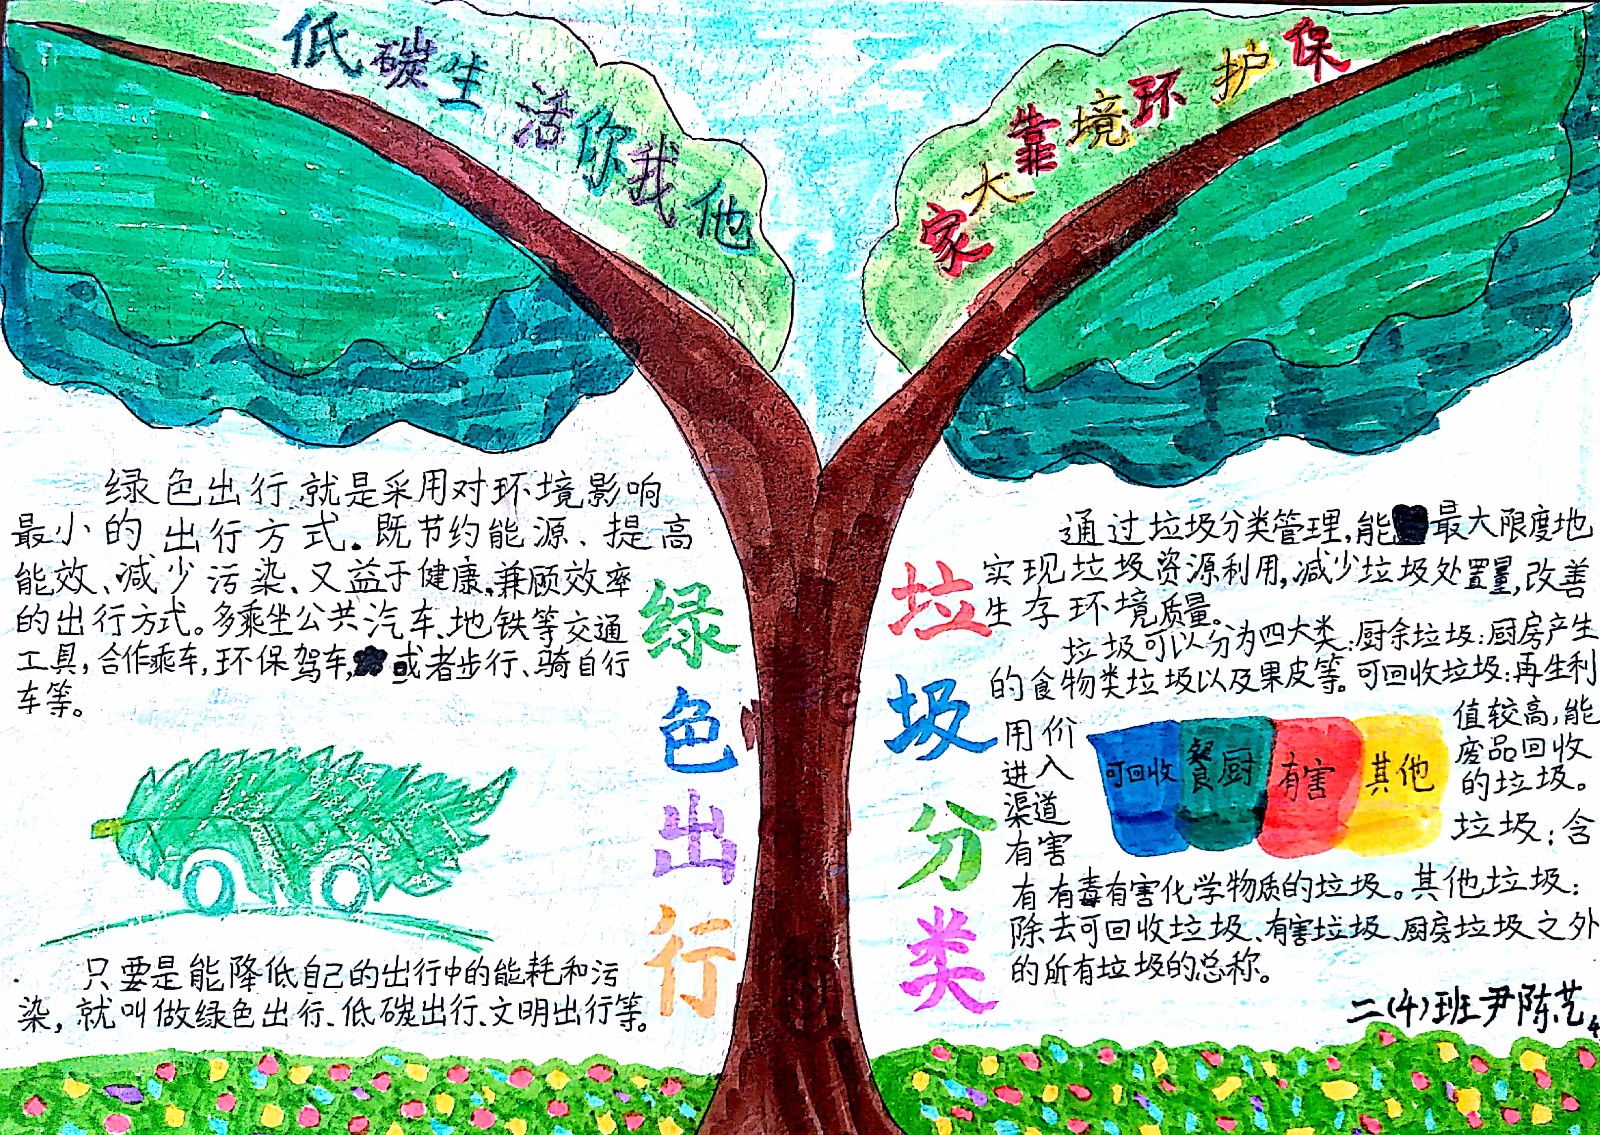 低碳生活你我他
保护环境靠大家
绿色出行就是采用对环境影响
最小的出行方式.既节约能源、提高
能效、减少污染、又益于健康,兼顾效率
的出行方式。多乘坐公共汽车、地铁等交通
工具,合作乘车,环保驾车,或者步行、骑自行
车等。
只要是能降低自己的出行中的能耗和污
染,就叫做绿色出行、低碳出行、文明出行等。
绿色出行
垃圾分类
通过垃圾分类管理,能最大限度地
实现垃圾资源利用,减少垃圾处置量,改善
生存环境质量。
垃圾可以分为四大类:厨余垃圾:厨房产生
的食物类垃圾以及果皮等。可回收垃圾:再生利
用价值较高,能
进入废品回收
渠道的垃圾。
有害垃圾:含
可回收
餐厨
有害
其他
有有毒有害化学物质的垃圾。其他垃圾:
除去可回收垃圾、有害垃圾、厨房垃圾之外
的所有垃圾的总称。
二(4)班尹陈艺